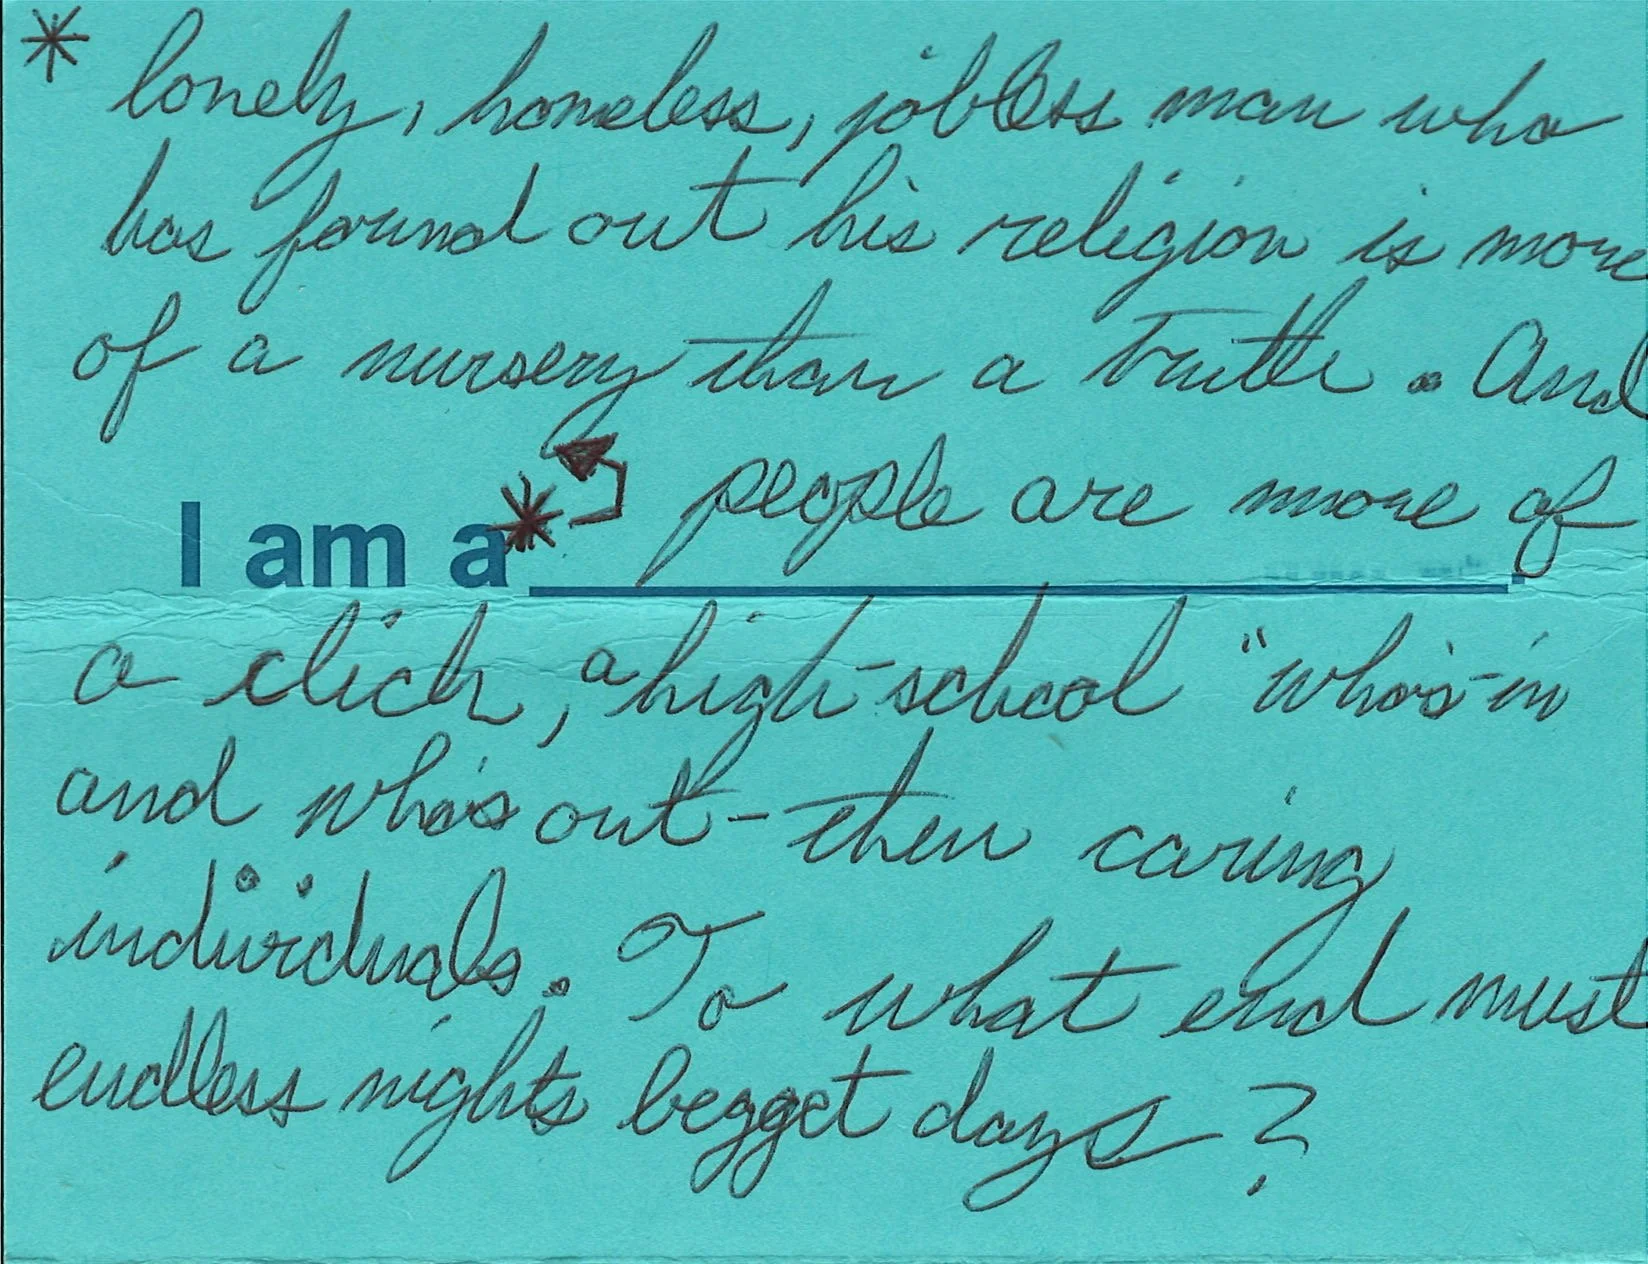 * lonely, homeless, jobless man who
has found out his religion is more
of a nursery than a truth. And
I am a* people are more of
a click, a high-school "who's-in
and who's out - then caring
individuals. To what end must
endless nights begget days?